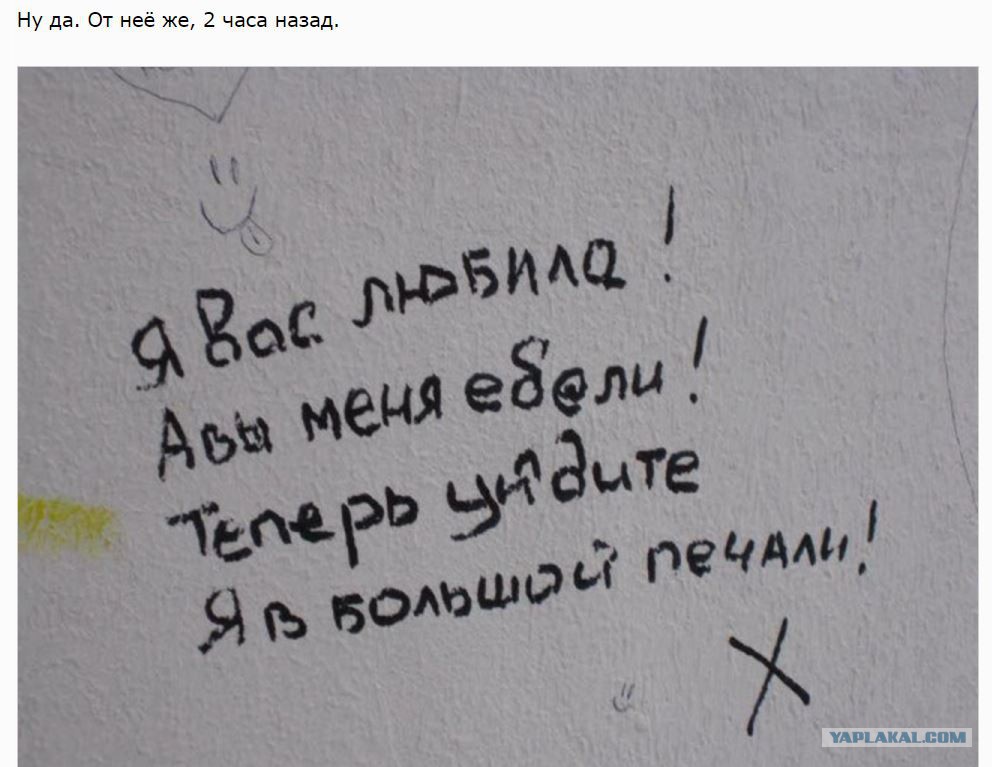 Ну да. От неё же, 2 часа назад.
Я Вас любила!
А вы меня еб@ли!
Теперь уйдите
Я в большой печали!
X
YAPLAKAL.COM